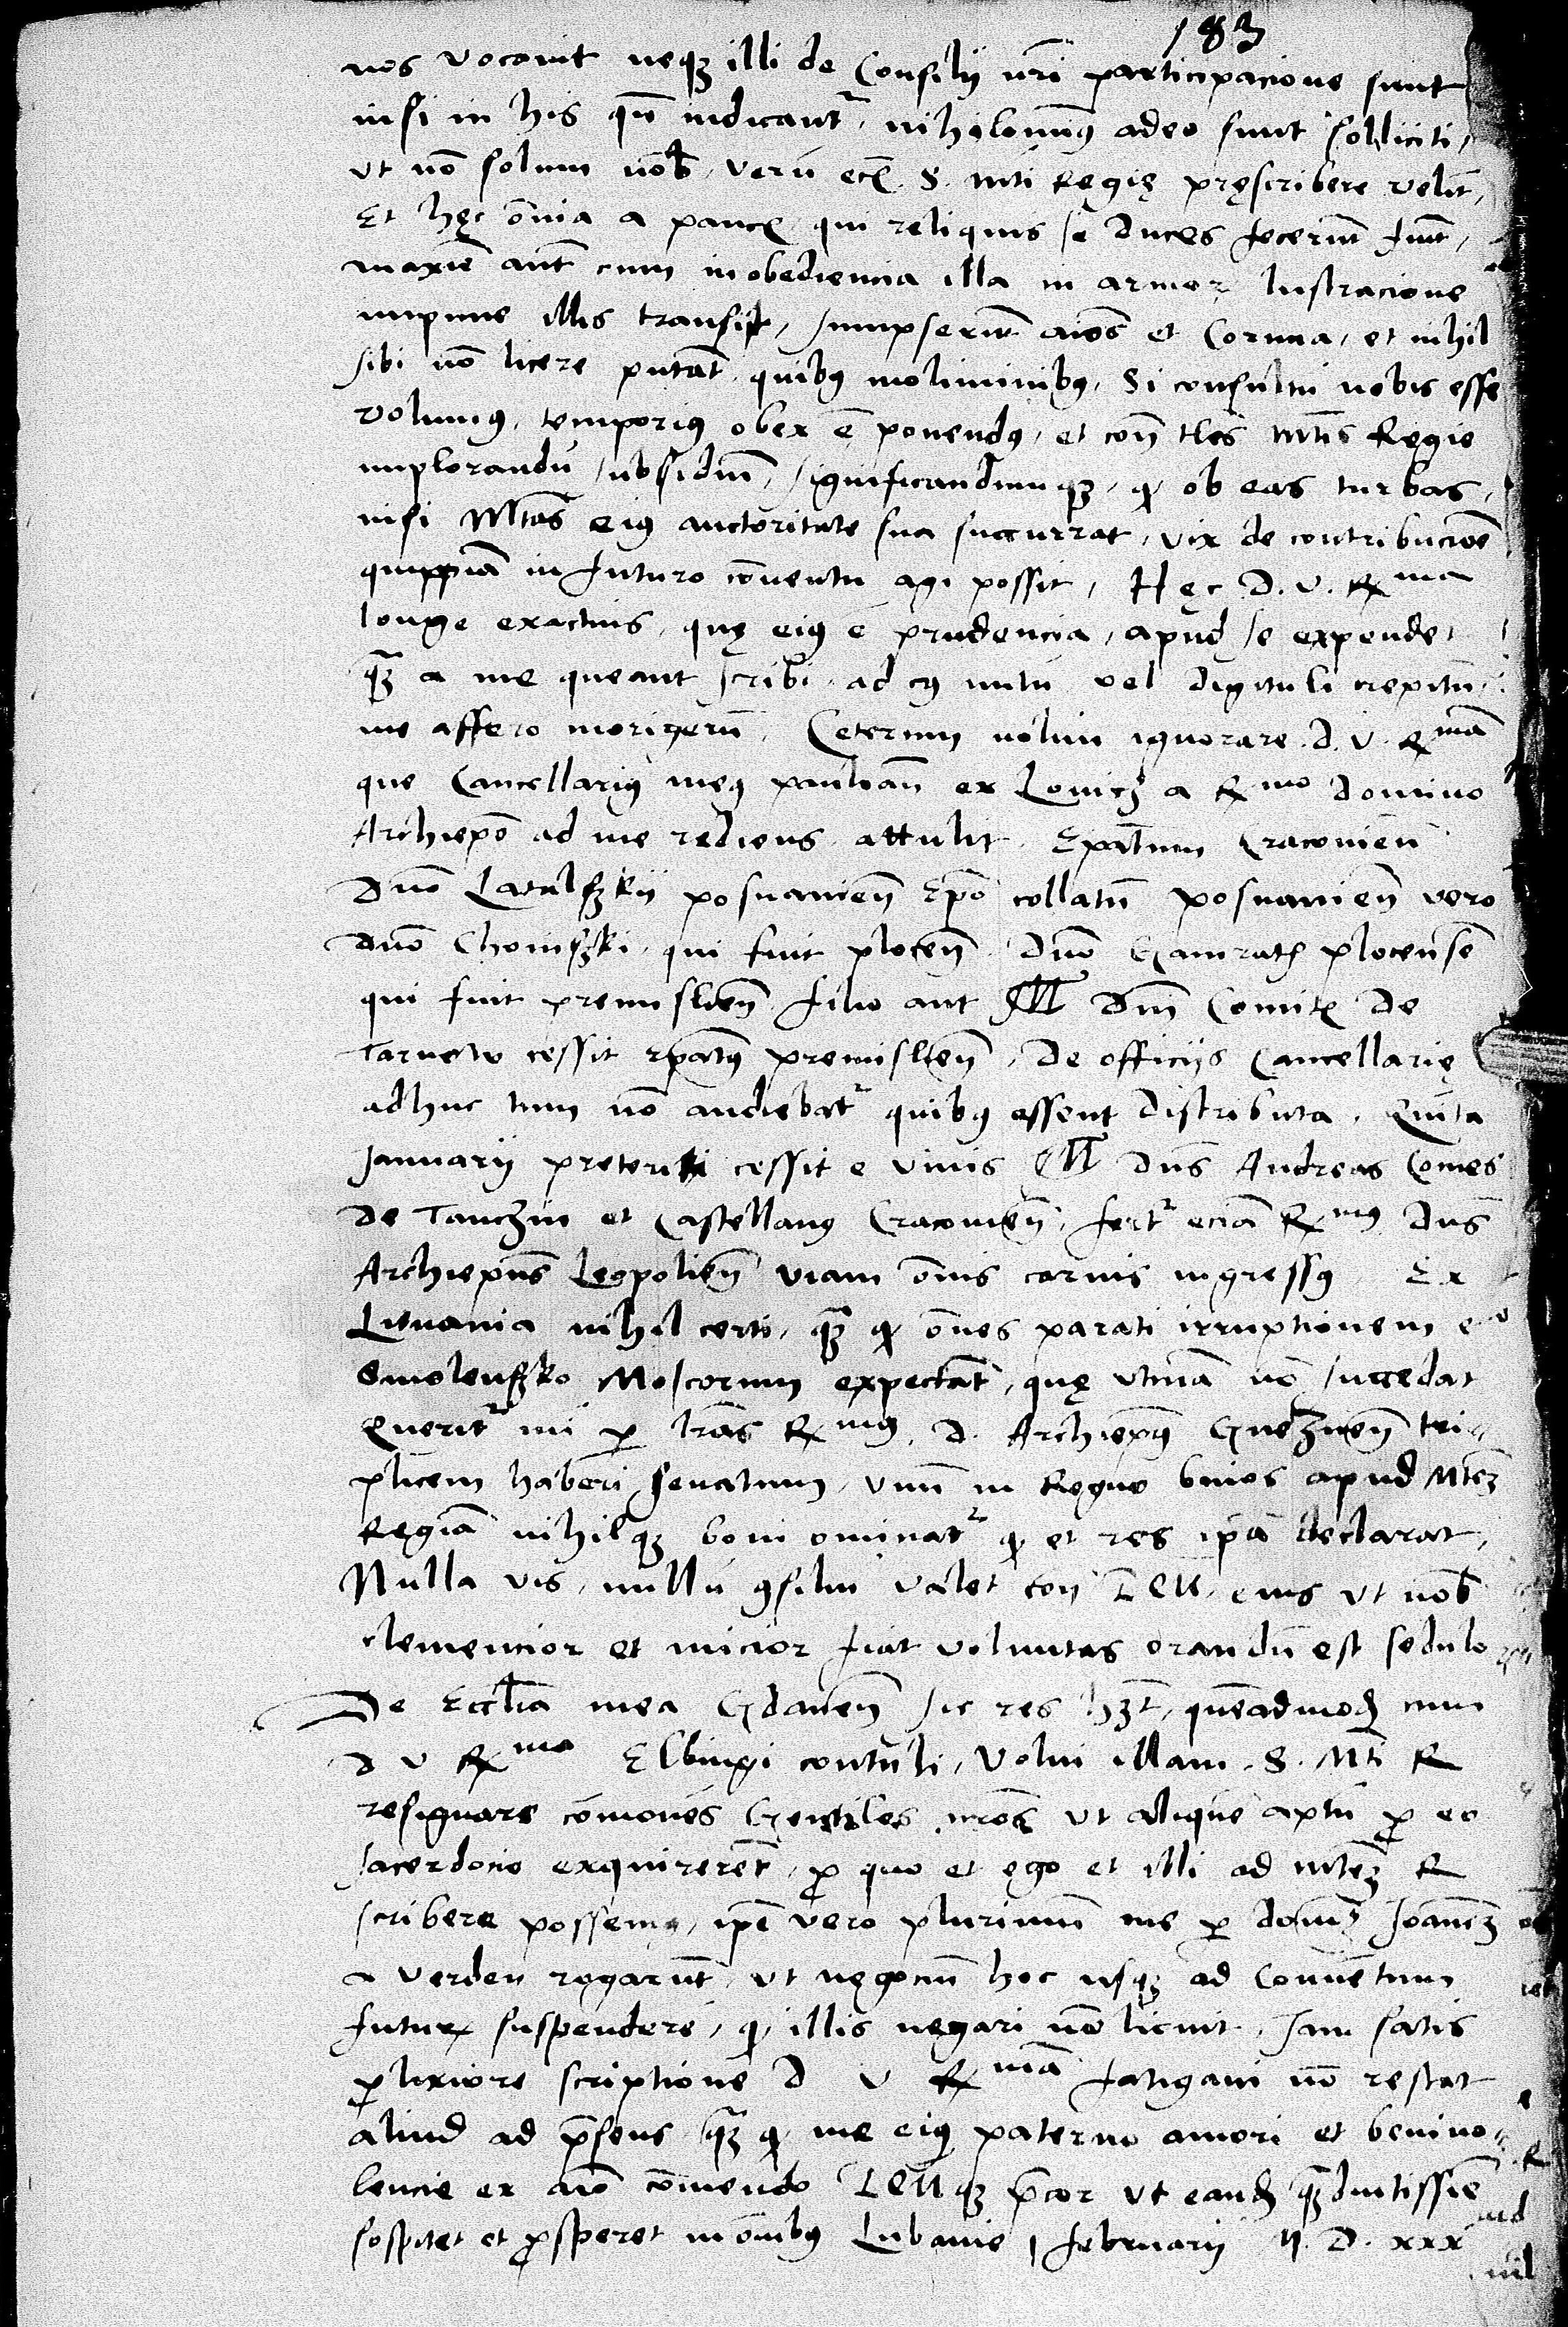 183
nos vocavit neqz illi de Consilii nri participacione sunt
nisi in his qu indicantr, nihilominus adeo sunt solliciti,
ut no solum nob, veru eci S. mti Regię pręscribere velit,
Et hęc omia a paucis qui reliquis se duces fecerunt fiunt,
maxie aut cum inobediencia illa in armor lustracione
impune illis transiit, sumpserunt aios et Cornua, et nihil
sibi no licere putat, quibus moliminibus, Si consultu nobis esse
volumus, temporius obex e ponendus, et con tles mtis Regie
implorandu subsidiu, significandumqz, q ob eas turbas,
nisi Mtas eius auctoritate sua succurrat, vix de contribucioe
quippia in futuro coventu agi possit, Hęc D. V. Rma
longe exactius, quę eius e prudencia, apud se expendet
qz a me queant scribi, ad cuius nutu vel digituli crepitu
me affero morigeru. Ceterum nolim ignorare D. V. Rma
que Cancellarius meus pauloan ex Lovicz a Rmo domino
Archiepo ad me rediens attulit. Epatum Cracovien
Dno Latalszkii posnanien Epo collatu posnanien vero
dno Choinszki, qui fuit plocen. Dno Gamrath plocense
qui fuit premislien filio aut Mci Dni Comitis de
Tarnow cessit epatus premislien, De officiis Cancellarię
adhuc tum no audiebatr quibus essent distributa. Quita
Ianuarii preteriti cessit e vivis Mcus Dns Andreas Comes
de Tanczin et Castellanus Cracovien, fertr ecia Rmus Dns
Archiepus Leopolien viam omis carnis ingressus Ex
Lituania nihil certi, qz q omes parati irruptionem e
Smolenszko Moscorum expectat, quę utina no succedat
Queritr mi p lras Rmus. D. Archiepus Gneznen tri
plicem haberi senatum, unu in Regno binos apud Mtez
Regia nihilqz boni ominatr q et res ipa declarat,
Nulla vis, nullu cosiliu valet con DEU, cuius ut nob
clemencior et micior fiat voluntas orandu est sedulo
De Ecclia mea Gdanen sic res hzt, queadmod cum
D V Rma Elbingi contuli, Volui illam S. Mti R
resignare comoues Gentiles meos ut alique aptu p eo
sacerdocio exquireret, p quo et ego et illi ad mtez R
scribere possemus, ipe vero plurimu me p domz Ioanez
a Verden rogarut, ut negociu hoc usqz ad Conventum
futur suspendere, q illis negari no licuit. Iam satis
plixiore scriptione D V Rma fatigavi no restat
aliud ad psens qz q me eius paterno amori et benivo
lencie ex aio comendo DEUqz pcor ut eand qz diutissie
sospitet et psperet in omibus Lubavie 1 februarii M. D. xxx